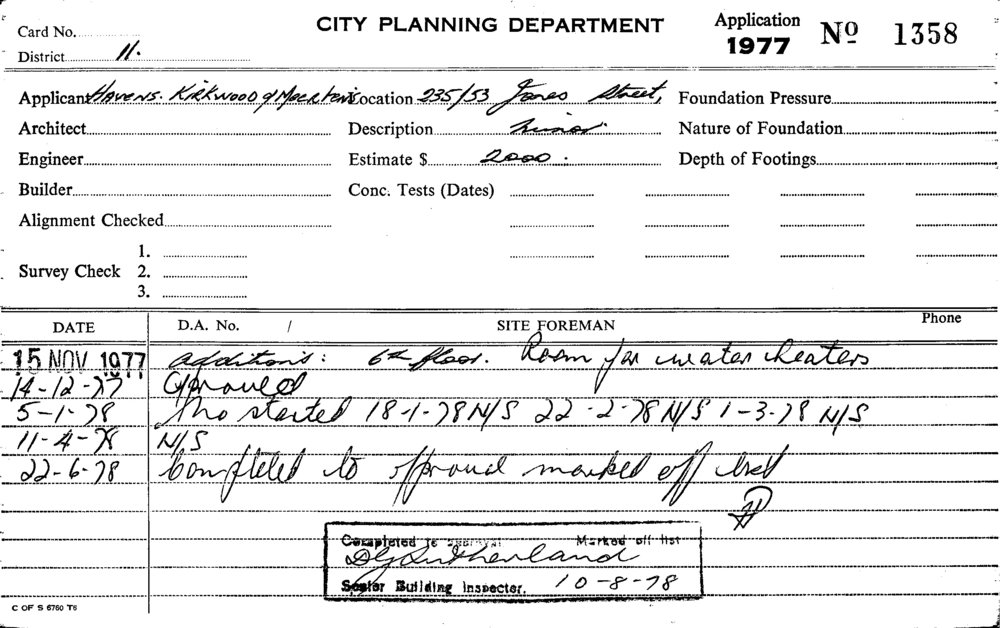 CITY PLANNING DEPARTMENT
Card No.
District 11.
Application 1977 Nº 1358
Applicant Havens. Kirkwood & Location 235/53 Jones Street, Foundation Pressure
Architect Description Minor. Nature of Foundation
Engineer Estimate $ 2000. Depth of Footings
Builder Conc. Tests (Dates)
Alignment Checked
1.
Survey Check 2.
3.
DATE D.A. No. / SITE FOREMAN Phone
15 NOV 1977 additions: 6th floor. Room for water heaters
14-12-77 approved
5-1-78 started 18-1-78 N/S 22-2-78 N/S 1-3-78 N/S
11-4-78 N/S
22-6-78 Completed to approval marked off list
Completed to approval Marked off list
D G Sutherland
Senior Building Inspector. 10-8-78
C OF S 6760 T6